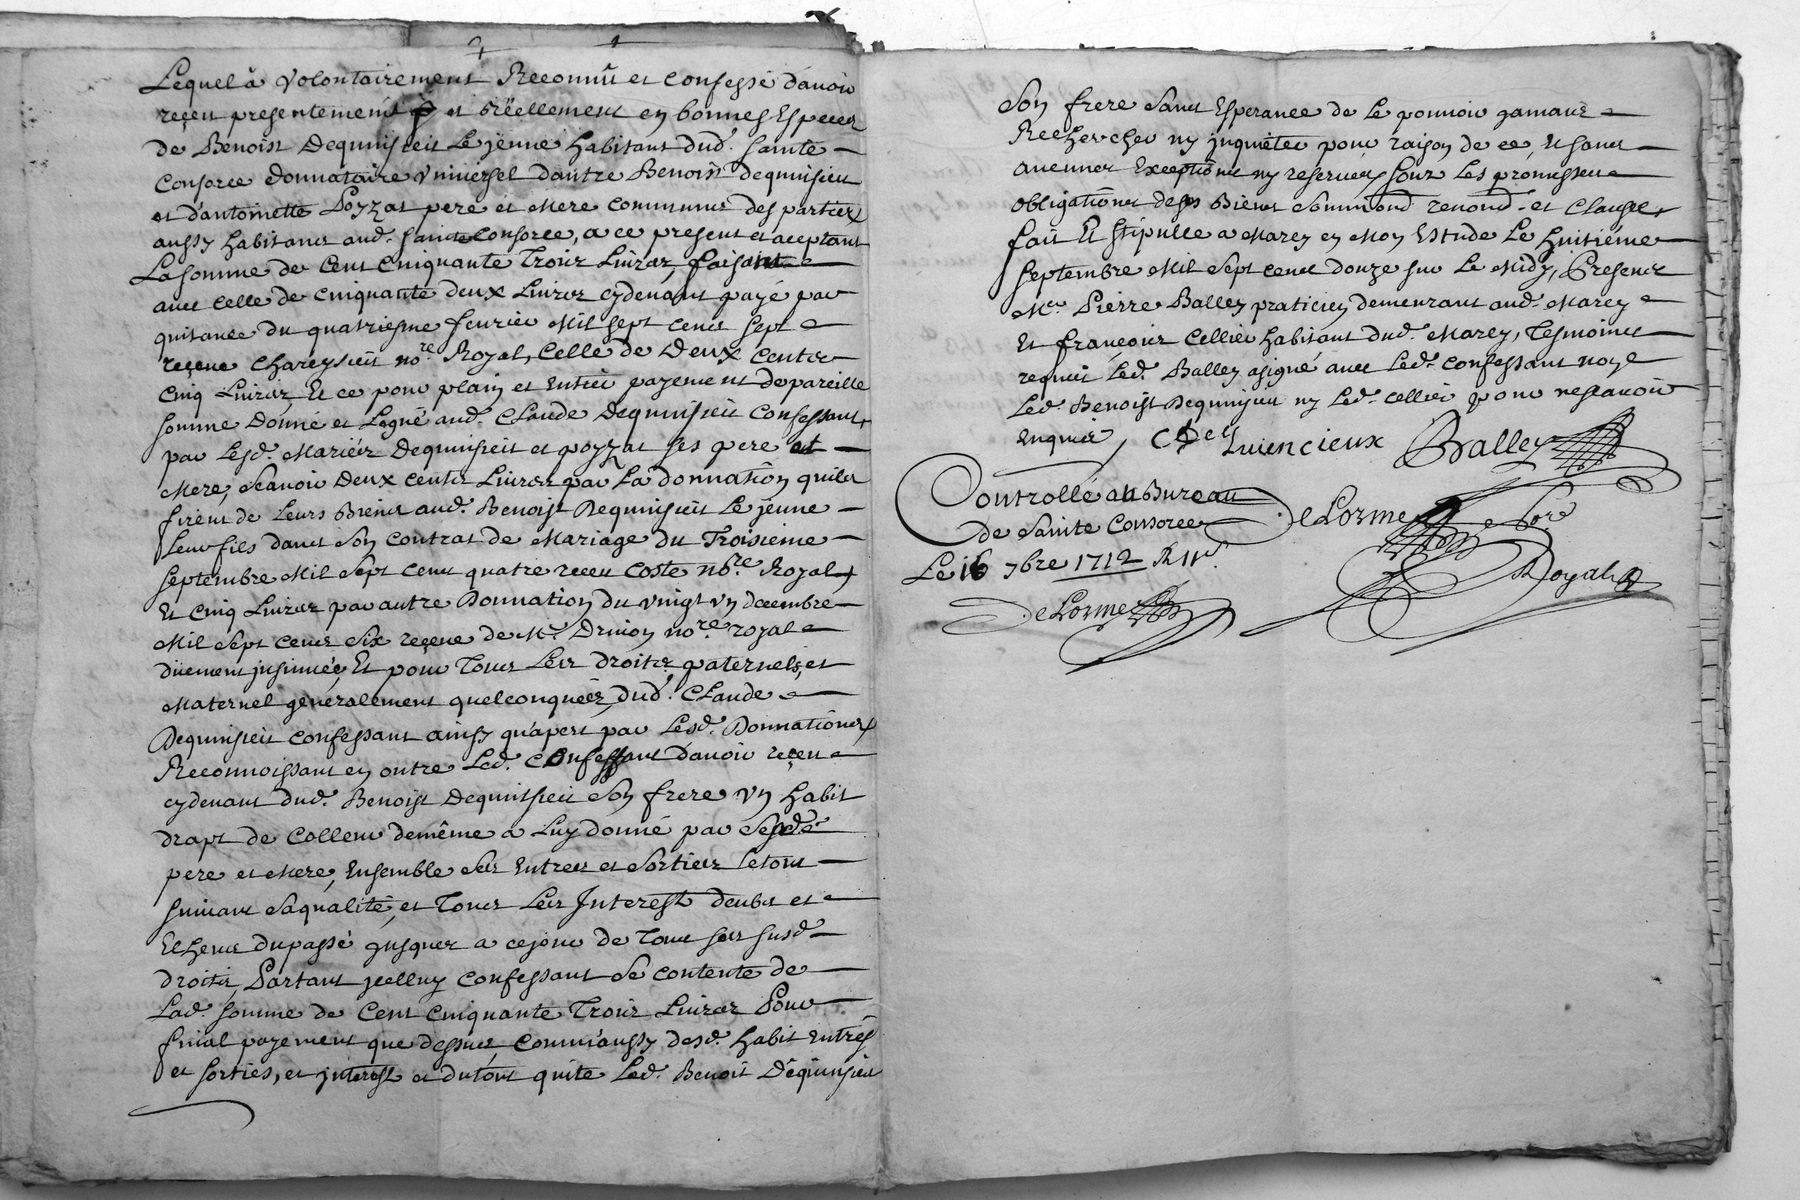 Lequel a volontairement Reconnu et confessé d'avoir
reçeu presentement et réellement en bonnes Especes
de Benoist Dequinsieu Le jeune habitant dud. Sainte
Consorce donnataire vniversel d'autre Benoist dequinsieu
et d'antoinette Poyzat pere et Mere communs des parties
aussy habitans aud. Sainte Consorce, a ce present et aceptant
La somme de Cent Cinquante Trois Livres, faisant
avec celle de cinquante deux Livres cydevant payé par
quitance du quatriesme fevrier Mil sept cens sept
reçeue Chareysieu no.re Royal, Celle de Deux Cents
Cinq Livres, Et ce pour plain et entier payement de pareille
somme Donné et Legué aud. Claude Dequinsieu Confessant
par Lesd. Mariés Dequinsieu et poyzat ses pere et
Mere, Scavoir Deux Cents Livres par La donnation quils
firent de Leurs Biens aud. Benoist Dequinsieu Le jeune
Leur fils dans Son Contrat de Mariage du Troisieme
Septembre Mil Sept Cens quatre receu Coste no.re Royal
Et Cinq Livres par autre Donnation du vingt vn decembre
Mil Sept Cens Six reçeue de M.e Drivon no.re royal
düement insinuée, Et pour Tous Les droits paternels, et
Maternel généralement quelconques, dud. Claude
Dequinsieu Confessant ainsy qu'apert par Lesd. Donnations
Reconnoissant en outre Led. Confessant d'avoir reçeu
cydevant dud. Benoist Dequinsieu Son frere vn habit
drapt de Colleur demême a Luy donné par Sesd.
pere et Mere, Ensemble Ses Entrees et Sorties Le tout
suivant Sa qualité, et Tous Les Interest deubs et
Echeus du passé jusques a ce jour de Tous ses susd.
droits, Partant jcelluy Confessant Se contente de
Lad. somme de Cent Cinquante Trois Livres Pour
final payement que dessus, comm'aussy desd. habit Entrés
et sorties, et interest et du tout quite Led. Benoit Dequinsieu
Son frere Sans Esperance de Le pouvoir jamais
Rechercher ny jnquiéter pour raison de ce, Et sans
aucunes Exceptions ny réserves, sous Les promesses
obligations de ses Biens Soummond. renond. et Clauses
fait Et Stipulle a Marcy en Mon Estude Le huitiéme
Septembre Mil Sept cens douze sur Le Midy, Presens
M.e Pierre Balley praticien demeurant aud. Marcy
Et françois Cellier habitant dud. Marcy, Tesmoins
requis Led. Balley a signé avec Led. Confessant non
Led. Benoist Dequinsieu ny Led. Cellier pour ne scavoir
Enquis,
Balley
Controllé au Bureau
de Sainte Consorce
DeLorme
no.re
Le 16 7bre 1712 R 11 s.
Royal
DeLorme